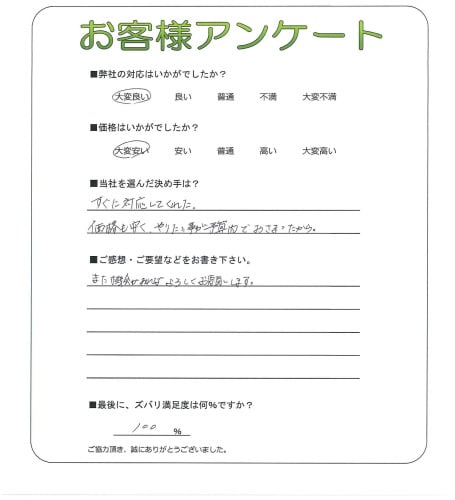 お客様アンケート
■弊社の対応はいかがでしたか？
大変良い 良い 普通 不満 大変不満
■価格はいかがでしたか？
大変安い 安い 普通 高い 大変高い
■当社を選んだ決め手は？
すぐに対応してくれた。
価格も安く、やりたい事が予算内でおさまったから。
■ご感想・ご要望などをお書き下さい。
また機会があればよろしくお願いします。
■最後に、ズバリ満足度は何%ですか？
100 %
ご協力頂き、誠にありがとうございました。